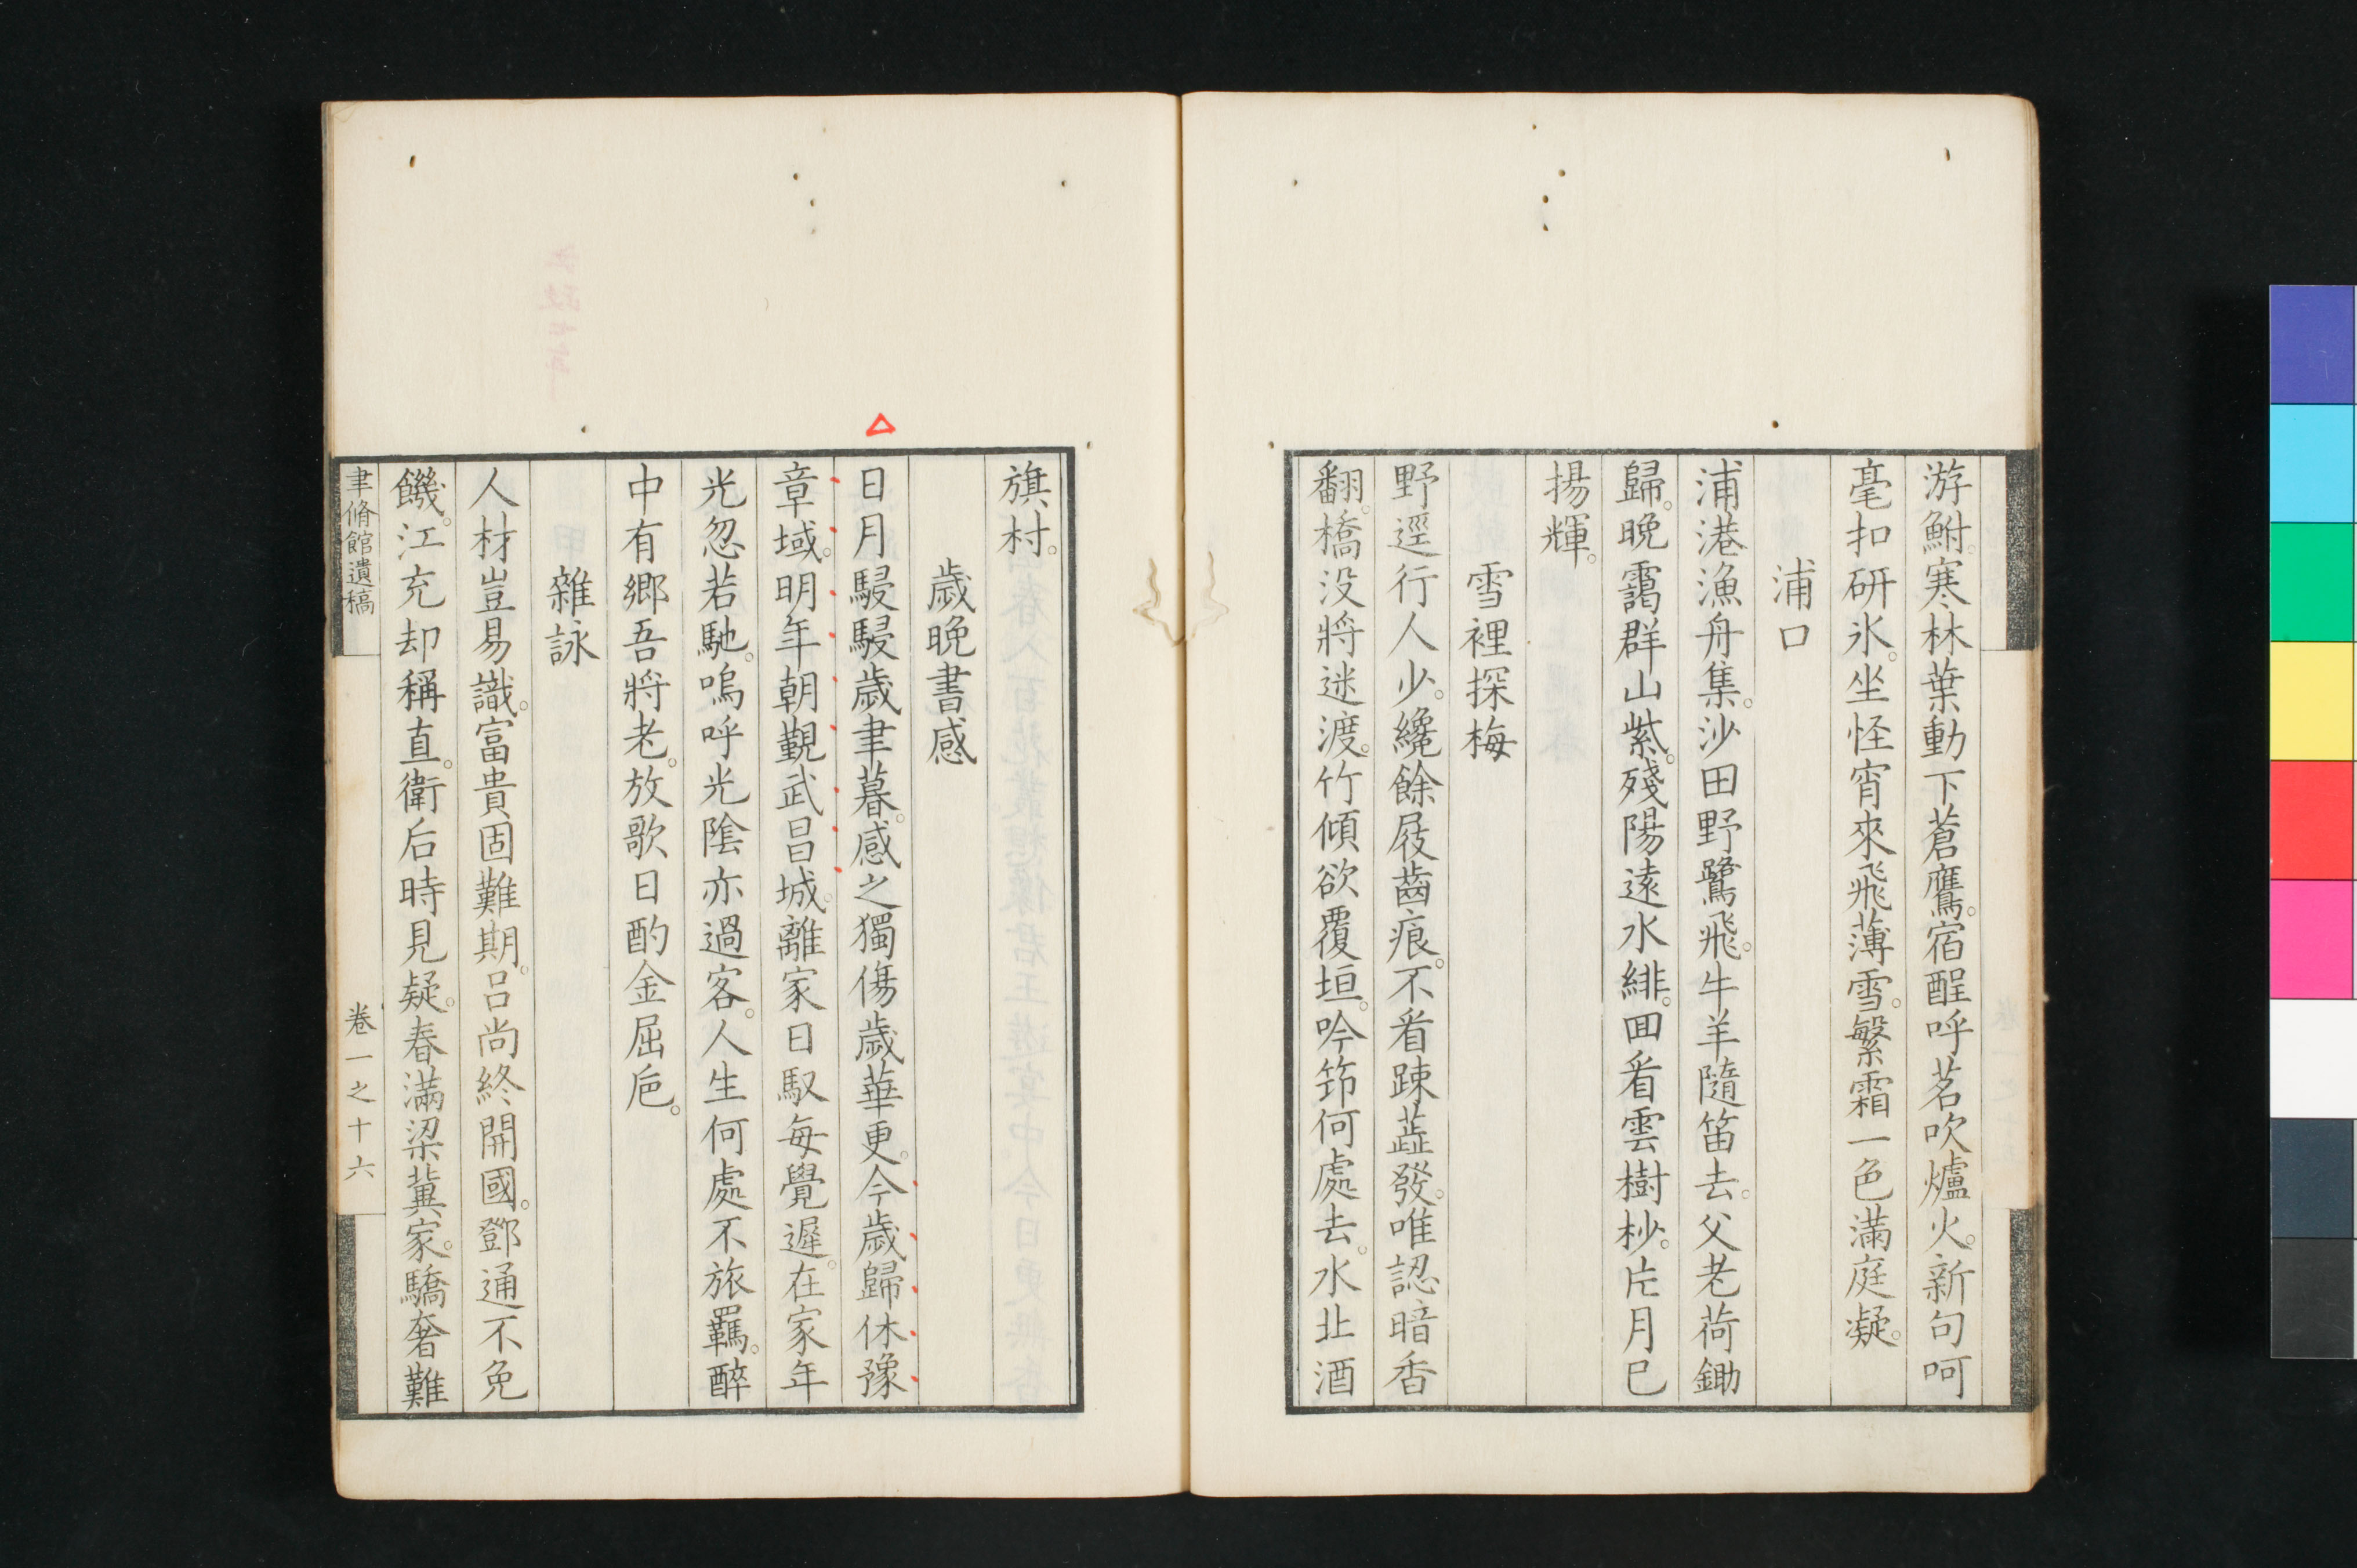 游鮒。寒林葉動下蒼鷹。宿酲呼茗吹爐火。新句呵
毫扣研氷。坐怪宵來飛薄雪。繁霜一色滿庭凝。
浦口
浦港漁舟集。沙田野鷺飛。牛羊隨笛去。父老荷鋤
歸。晩靄群山紫。殘陽遠水緋。回看雲樹杪。片月已
揚輝。
雪裡探梅
野逕行人少。纔餘屐齒痕。不看踈蘂發。唯認暗香
翻。橋没將迷渡。竹傾欲覆垣。吟筇何處去。水北酒
旗村。
歳晩書感
日月駸駸歳聿暮。感之獨傷歳華更。今歳歸休豫
章域。明年朝覲武昌城。離家日馭每覺遲。在家年
光忽若馳。嗚呼光陰亦過客。人生何處不旅羈。醉
中有鄉吾將老。放歌日酌金屈巵。
雜詠
人材豈易識。富貴固難期。呂尚終開國。鄧通不免
饑。江充却稱直。衛后時見疑。春滿梁冀家。驕奢難
聿脩館遺稿
卷一之十六